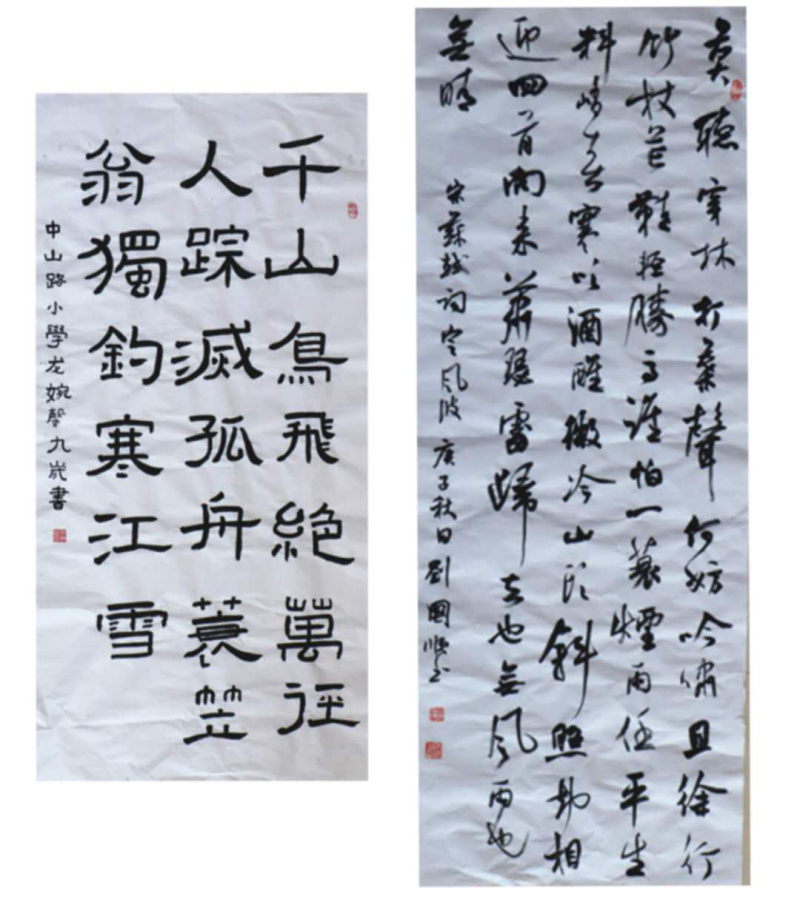 千山鳥飛絶萬徑
人踪滅孤舟蓑笠
翁獨釣寒江雪
中山路小學龙婉馨九岁書
莫聽穿林打葉聲何妨吟嘯且徐行
竹杖芒鞵輕勝馬誰怕一蓑煙雨任平生
料峭春寒吹酒醒微冷山頭斜照却相
迎回首向來蕭瑟處歸去也無風雨也
無晴
宋蘇軾詞定風波庚子秋日劉國順书